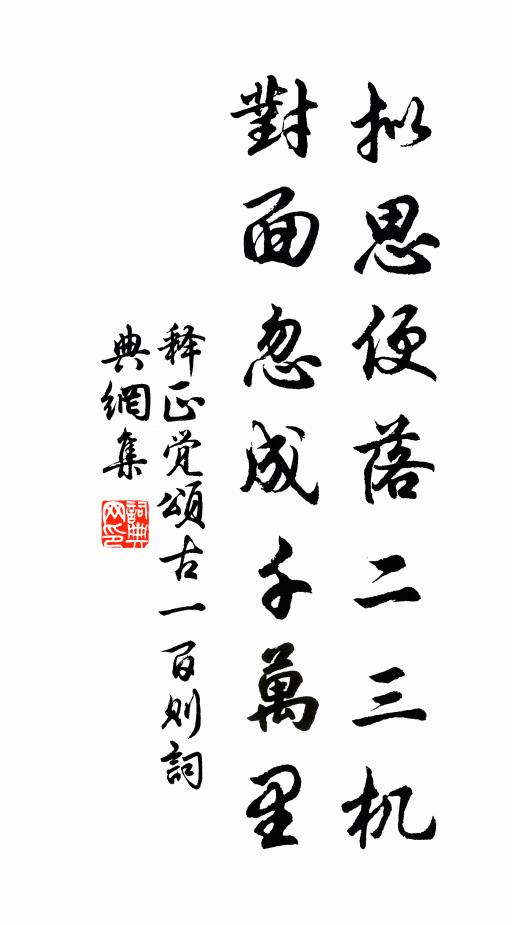 拟思便落二三机
對面忽成千萬里
释正觉頌古一百则詞
典網集
詞典网印